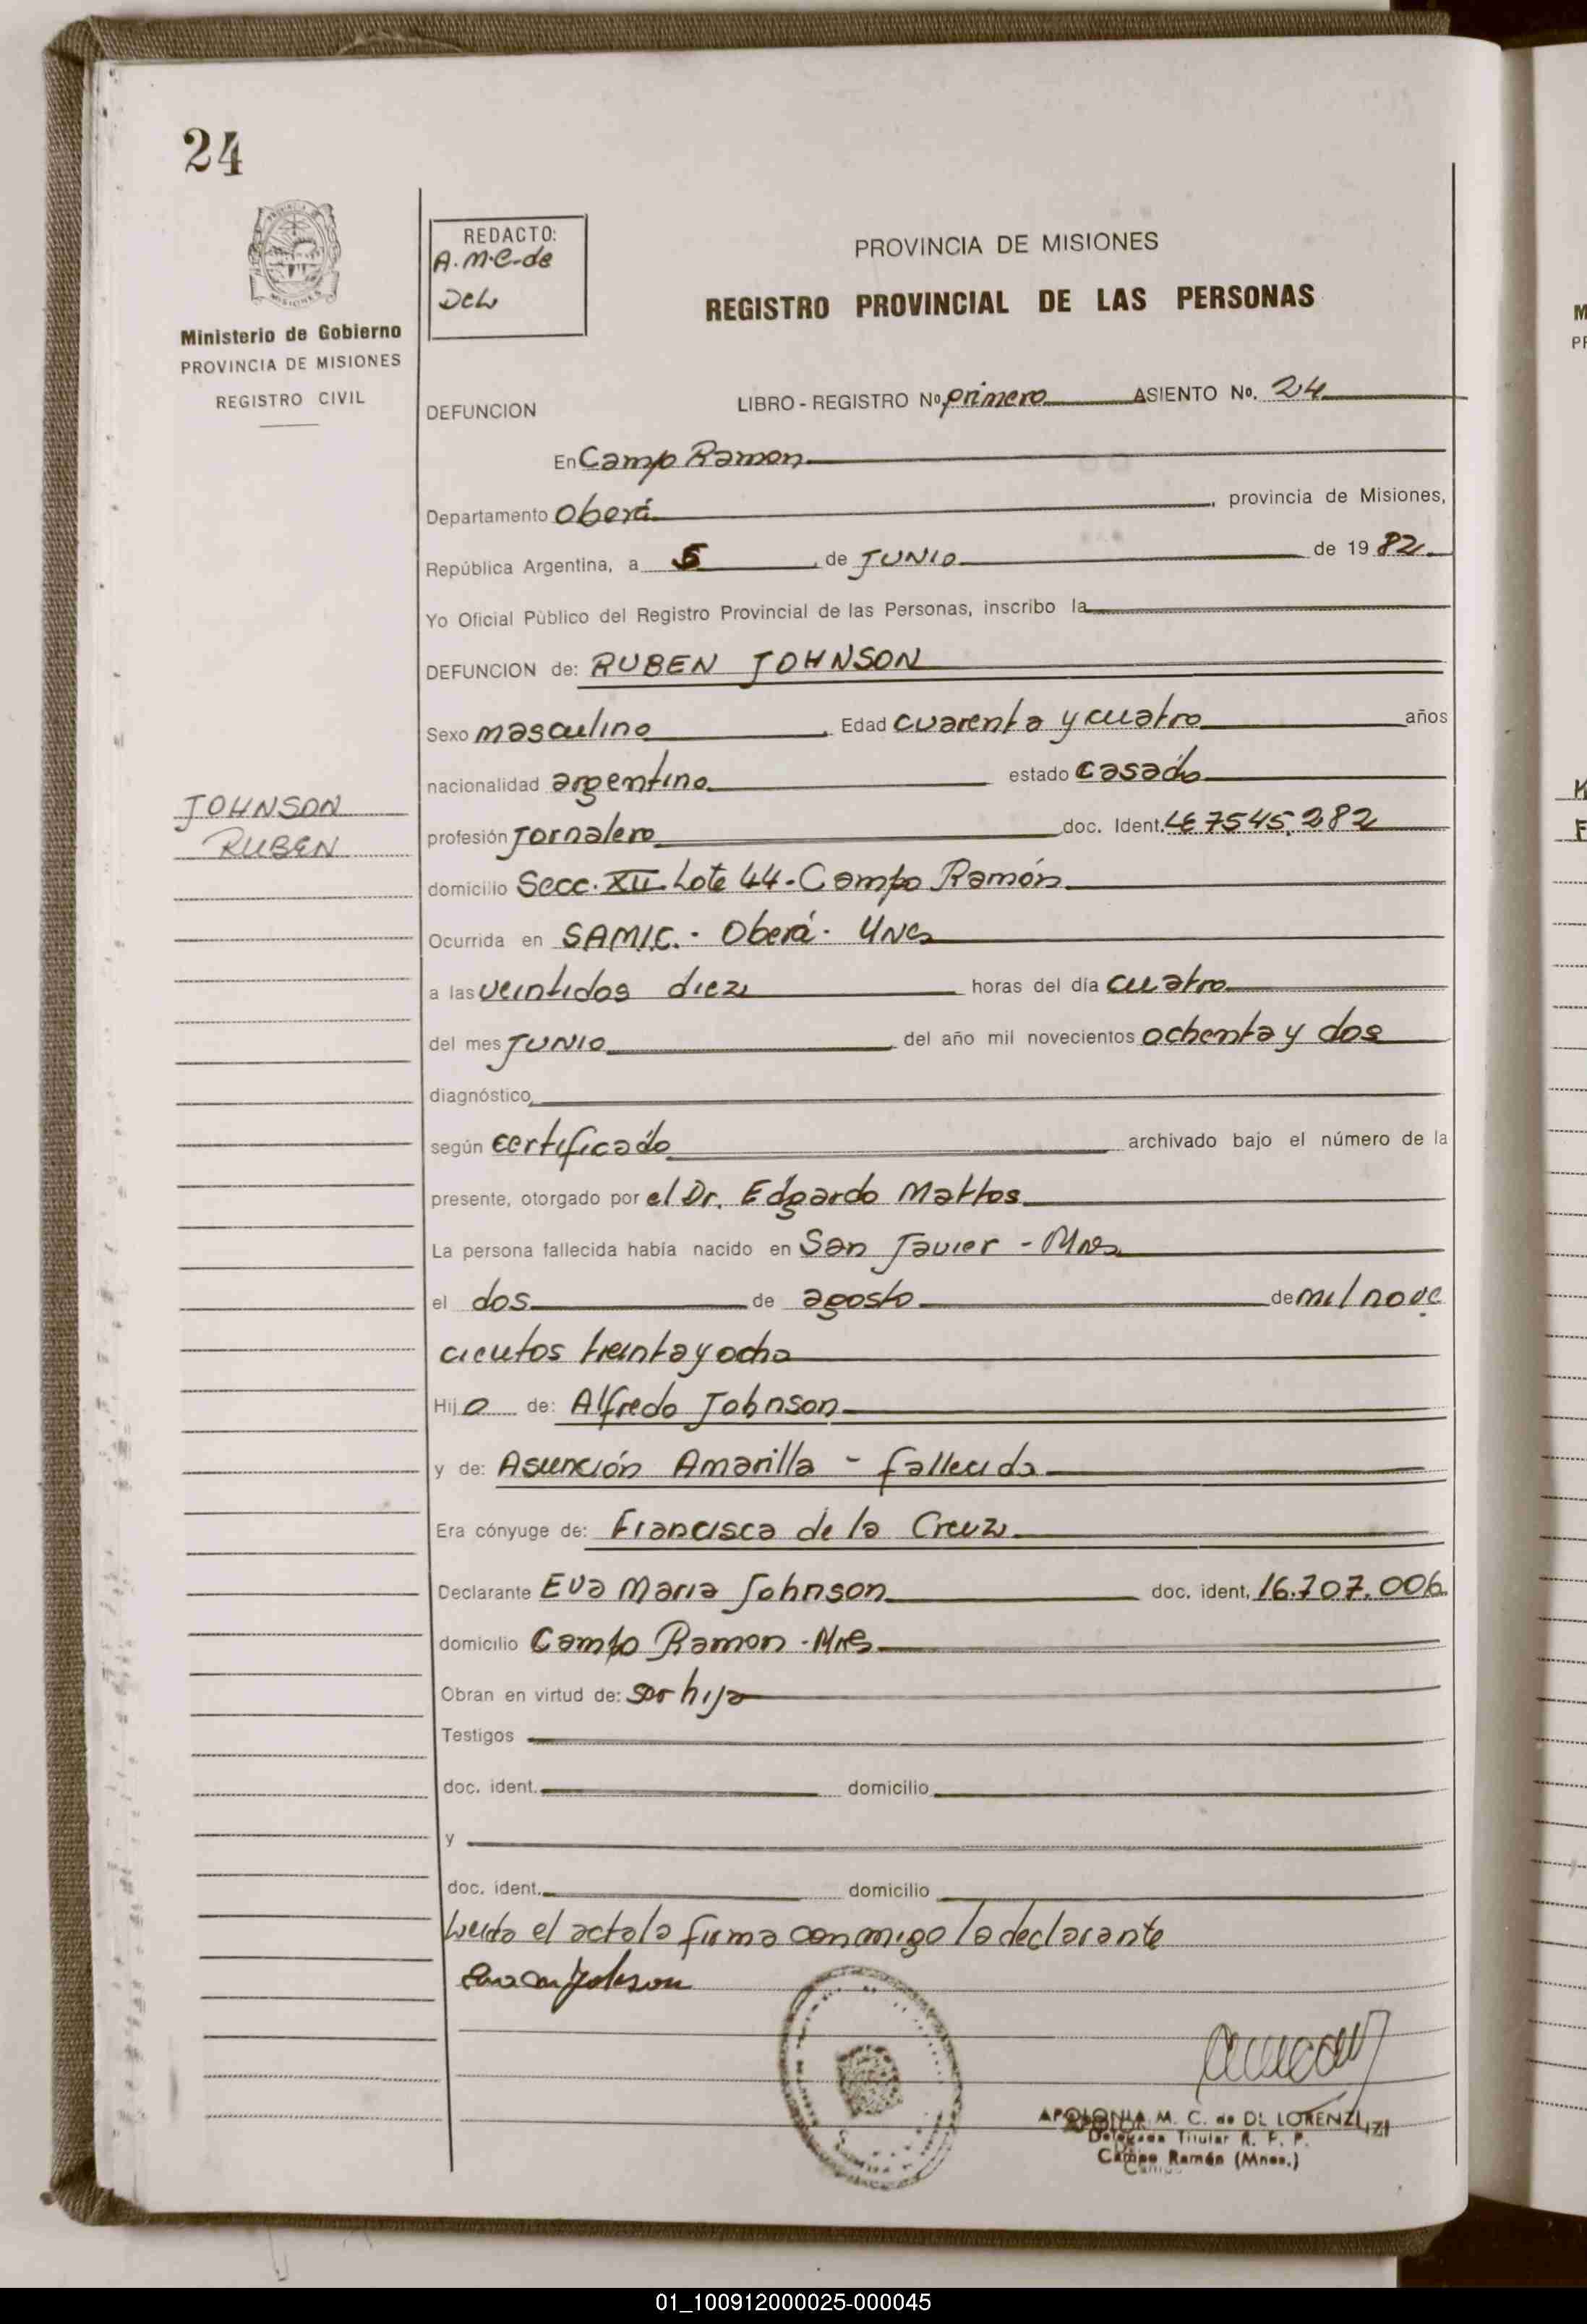 24
REDACTO:
A.M.C. de
DeL
Ministerio de Gobierno
PROVINCIA DE MISIONES
REGISTRO CIVIL
PROVINCIA DE MISIONES
REGISTRO PROVINCIAL DE LAS PERSONAS
DEFUNCION LIBRO - REGISTRO Nº primero ASIENTO Nº. 24
En Campo Ramon
Departamento Oberá, provincia de Misiones,
República Argentina, a 5, de JUNIO de 1982
Yo Oficial Público del Registro Provincial de las Personas, inscribo la
DEFUNCION de: RUBEN JOHNSON
Sexo masculino, Edad cuarenta y cuatro años
nacionalidad argentino estado casado
JOHNSON
RUBEN
profesión Jornalero doc. Ident. LE 7545.282
domicilio Secc. XII Lote 44 - Campo Ramón
Ocurrida en SAMIC. - Oberá -
a las veintidos diez horas del día cuatro
del mes JUNIO del año mil novecientos ochenta y dos
diagnóstico
según certificado archivado bajo el número de la
presente, otorgado por el Dr. Edgardo Mattos
La persona fallecida había nacido en San Javier - Mnes
el dos de agosto de mil nove
cientos treinta y ocho
Hijo de: Alfredo Johnson
y de: Asunción Amarilla - fallecida
Era cónyuge de: Francisca de la Cruz
Declarante Eva Maria Johnson doc. ident. 16.707.006
domicilio Campo Ramon - Mnes
Obran en virtud de: ser hija
Testigos
doc. ident. domicilio
y
doc. ident. domicilio
Leida el acta la firma conmigo la declarante
Eva M Johnson
APOLONIA M. C. de DE LORENZI
Delegada Titular R. P. P.
Campo Ramón (Mnes.)
01_100912000025-000045